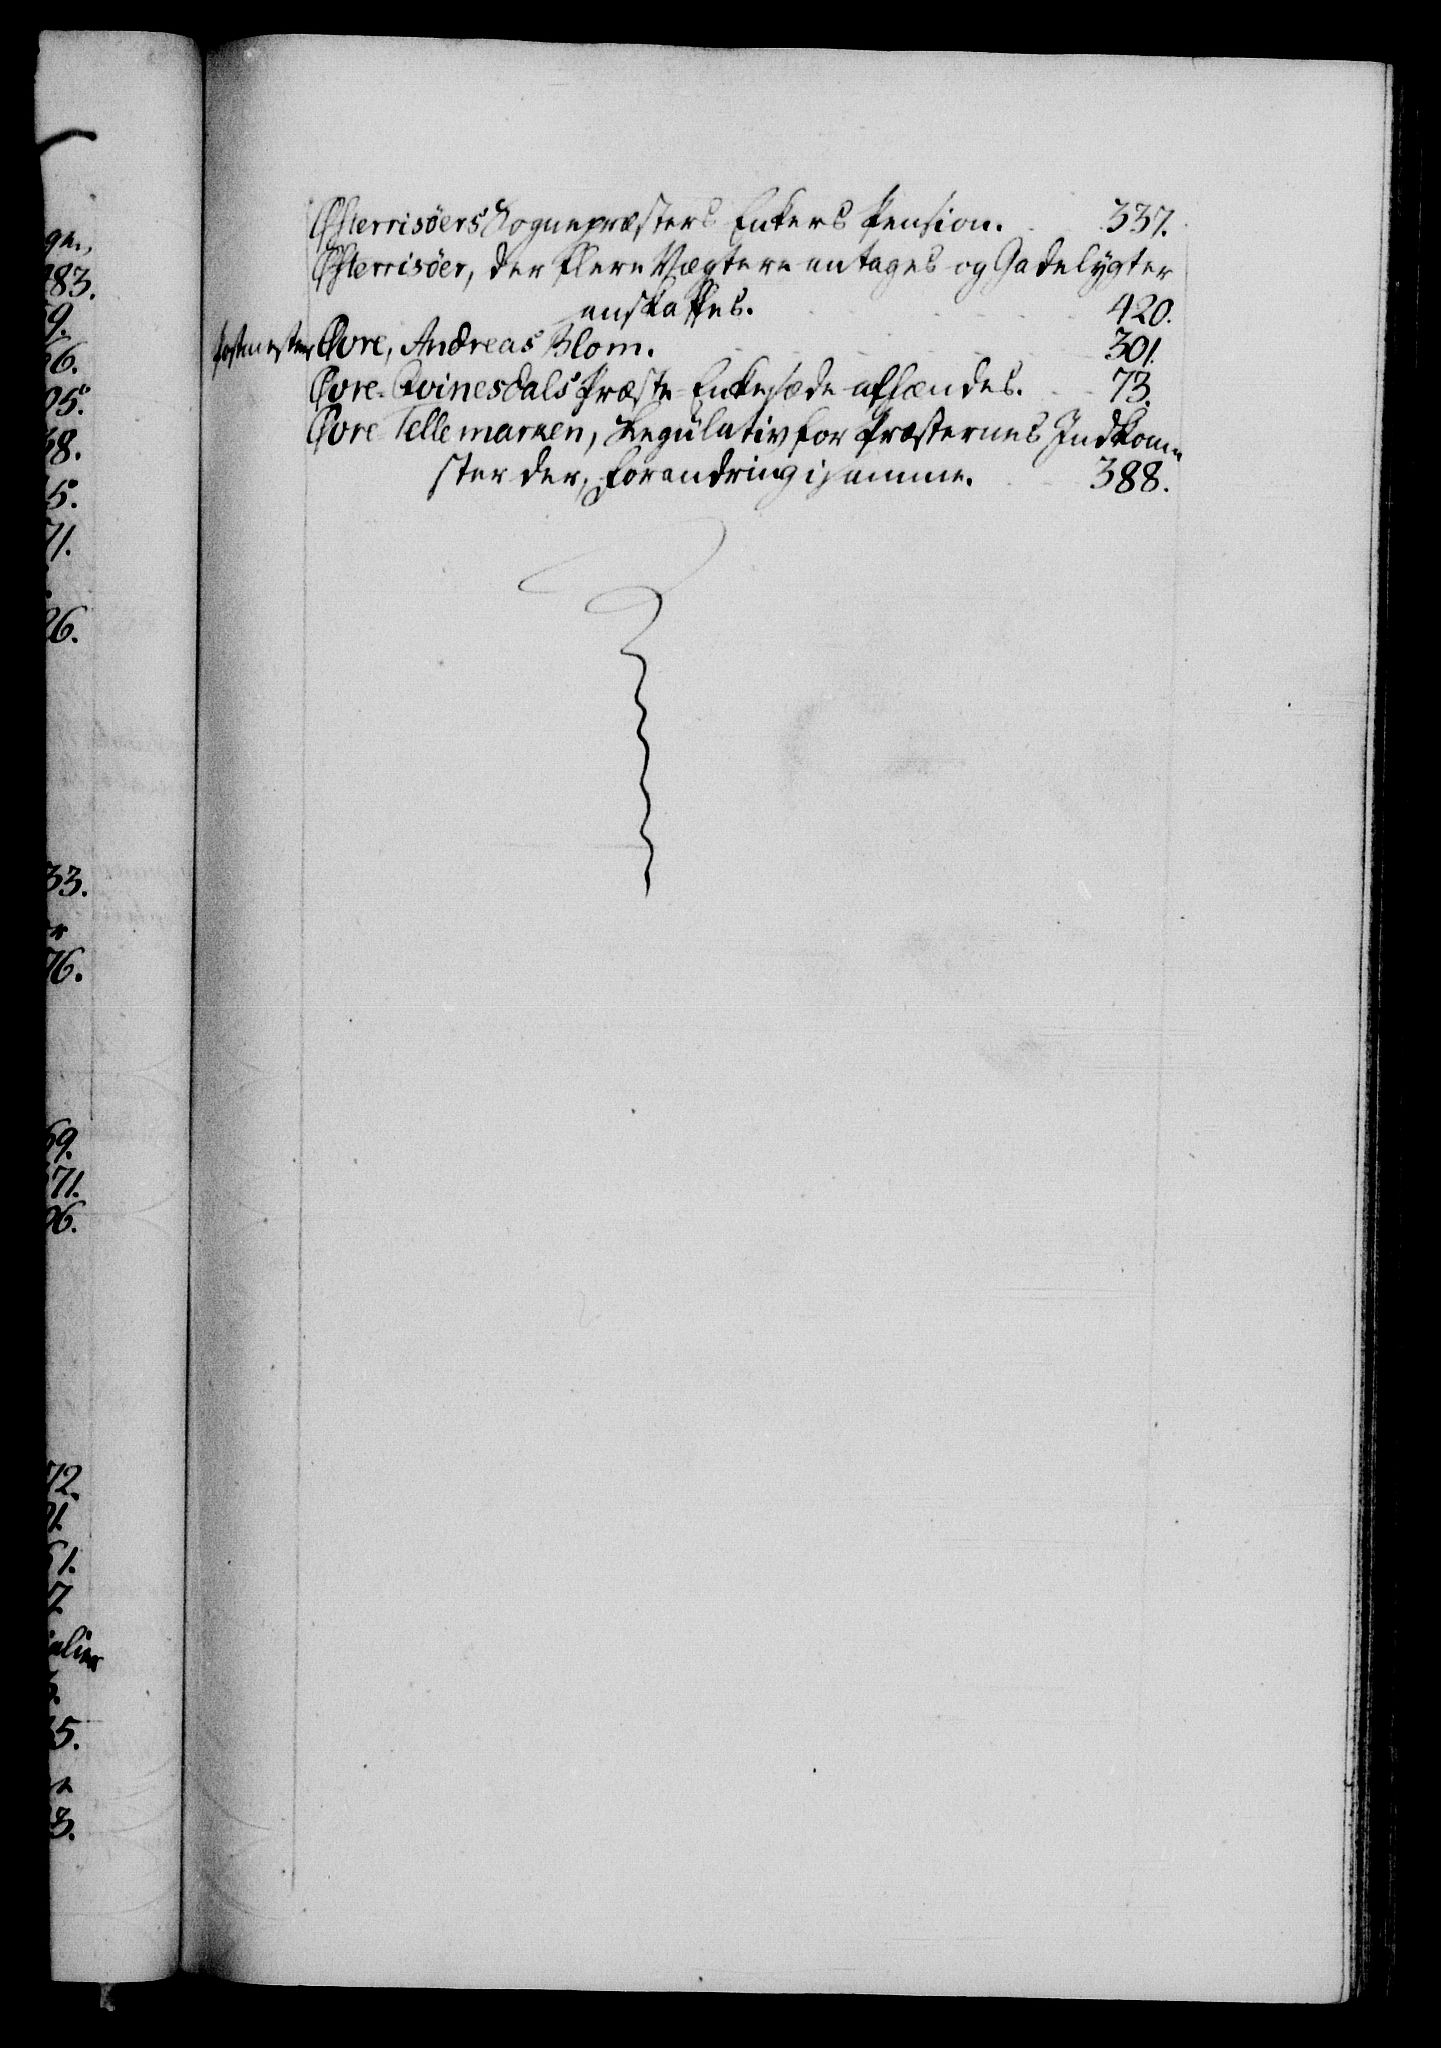 Østerrisöers Sognepræsters Enkers Pension. 337.
Østerrisöer, der flere Vægtere antages og Gadelygter
anskaffes. 420.
Postmester Øvre, Andreas Blom. 301.
Øvre-Qvinesdals Præste-Enkesæde afhændes. 73.
Øvre Tellemarken, Regulativ for Præsternes Indkom-
ster der, forandring i samme. 388.